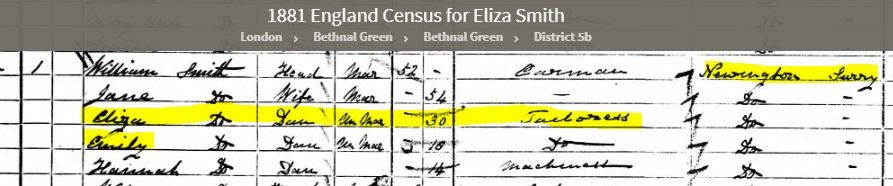 1881 England Census for Eliza Smith
London › Bethnal Green › Bethnal Green › District 5b
1 William Smith Head Mar 52 - Carman Newington Surry
Jane Do Wife Mar - 54 — Do -
Eliza Do Dau Un Mar 30 Tailoress Do -
Emily Do Dau Un Mar 18 Do Do -
Hannah Do Dau 14 Machinest Do -